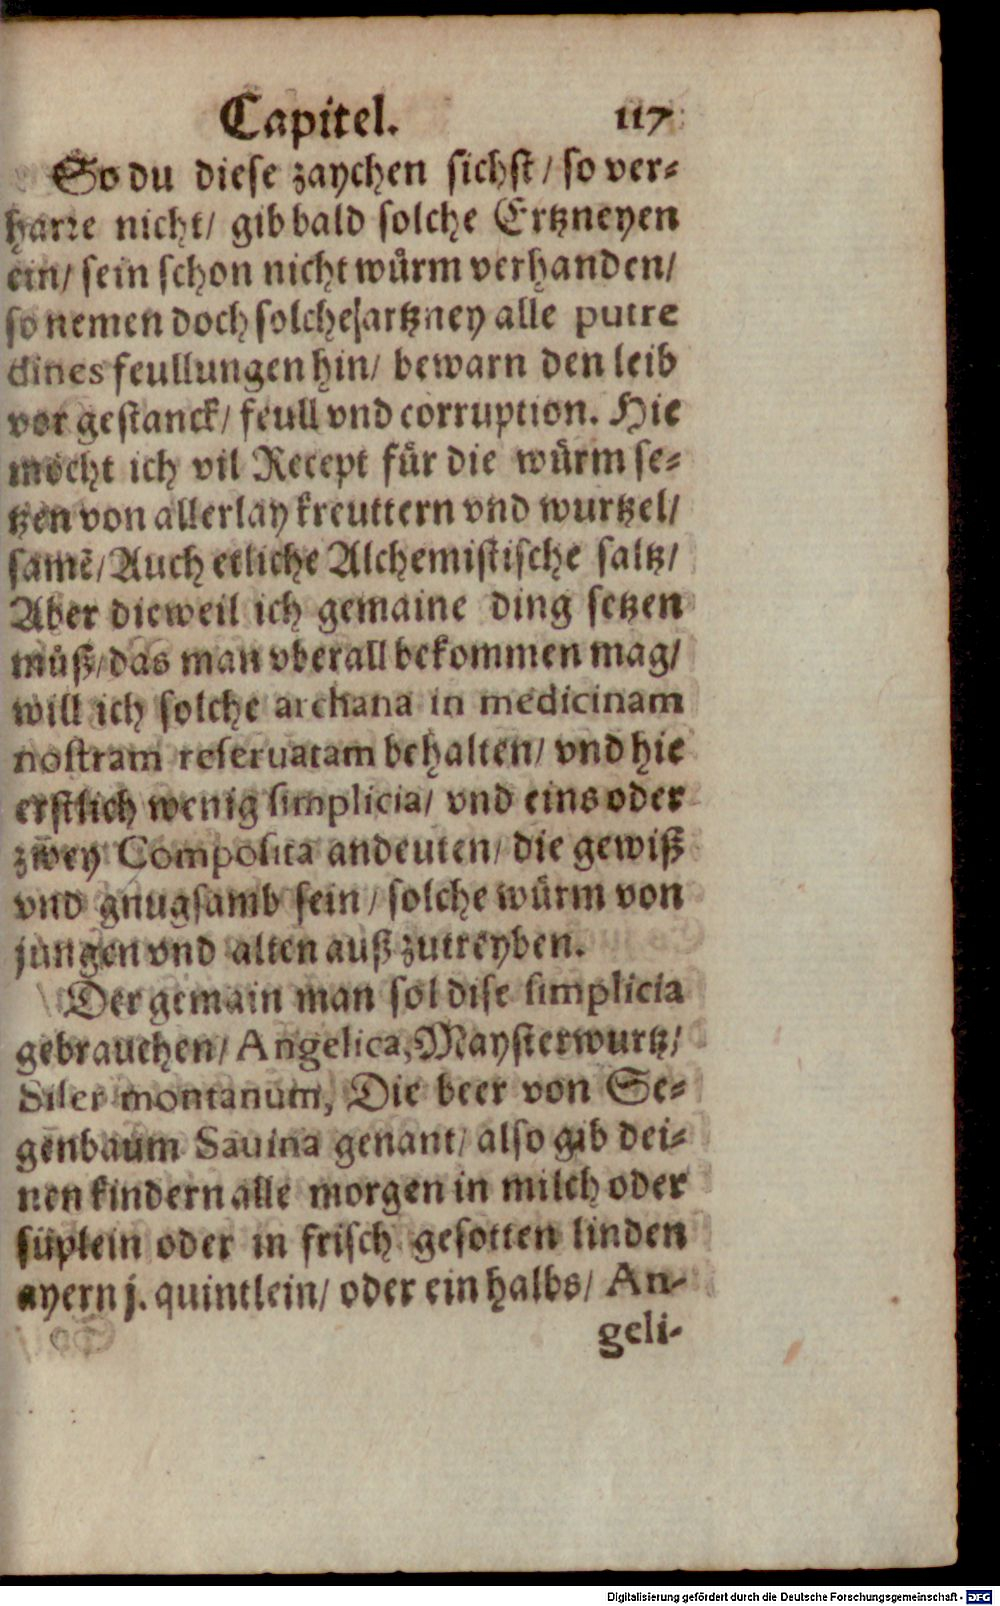 Capitel. 117
So du diese zaychen sichst / so ver-
harre nicht / gib bald solche Ertzneyen
ein / sein schon nicht wůrm verhanden /
so nemen doch solche artzney alle putre
dines feullungen hin / bewarn den leib
vor gestanck / feull vnd corruption. Hie
mocht ich vil Recept fůr die wůrm se-
tzen von allerlay kreuttern vnd wurtzel /
samē / Auch etliche Alchemistische saltz /
Aber dieweil ich gemaine ding setzen
můß / das man vberall bekommen mag /
will ich solche archana in medicinam
nostram reseruatam behalten / vnd hie
erstlich wenig simplicia / vnd eins oder
zwey Composita andeuten / die gewiß
vnd gnugsamb sein / solche wůrm von
jungen vnd alten auß zutreyben.
Der gemain man sol dise simplicia
gebrauchen / Angelica, Maysterwurtz /
Siler montanum, Die beer von Se-
genbaum Sauina genant / also gib dei-
nen kindern alle morgen in milch oder
süplein oder in frisch gesotten linden
ayern j. quintlein / oder ein halbs / An-
geli-
Digitalisierung gefördert durch die Deutsche Forschungsgemeinschaft - DFG